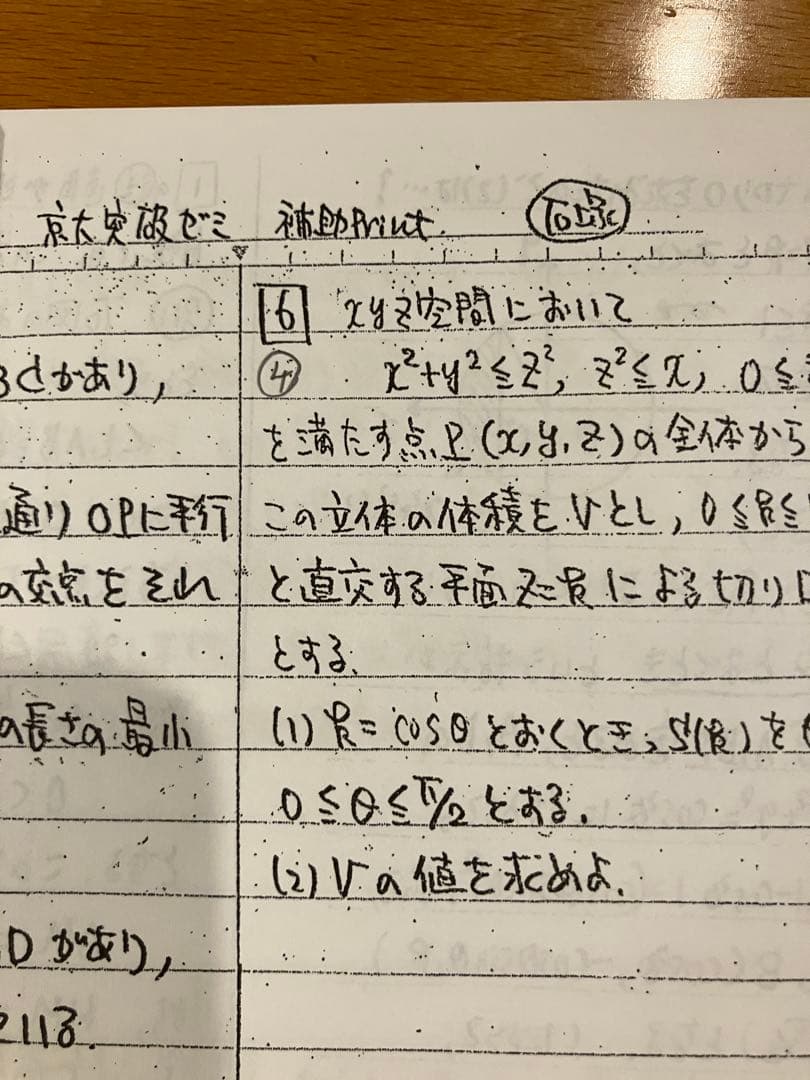 京大突破ゼミ 補助Print.
3dがあり,
通りOPに平行
の交点をそれ
の長さの最小
Dがあり,
ている.
6 xyz空間において
④ x²+y²≦z², z²≦x, 0≦z
を満たす点P(x,y,z)の全体から
この立体の体積をVとし, 0≦k≦
と直交する平面z=kによる切り口
とする.
(1) k=cosθとおくとき, S(k)をθ
0≦θ≦π/2とする.
(2) Vの値を求めよ.